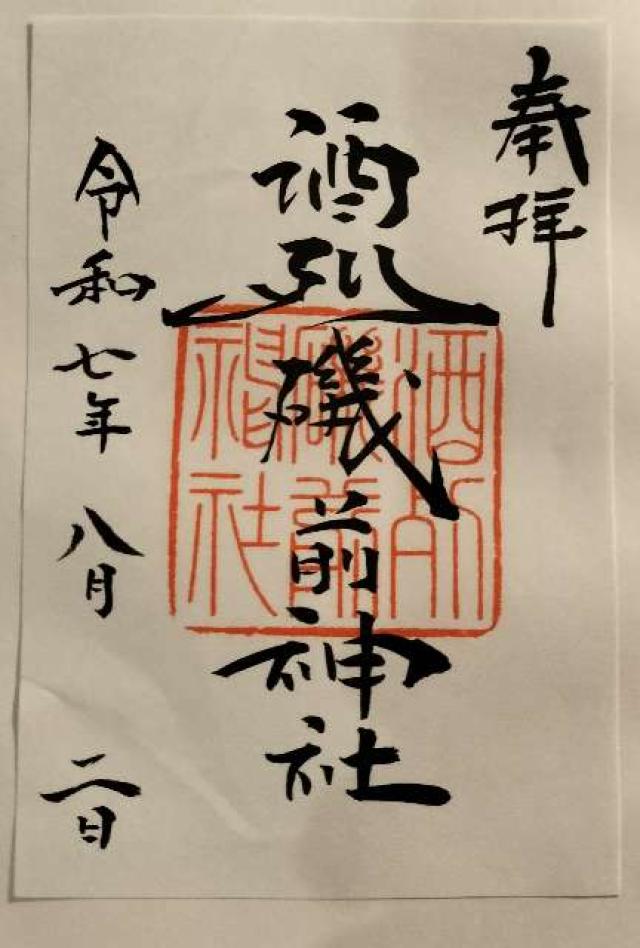 奉拝
酒列磯前神社
酒列磯前神社
令和七年 八月 二日